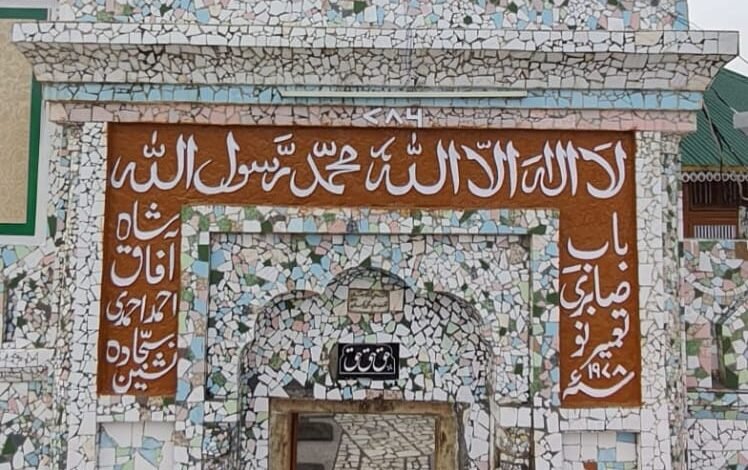 ۷۸۶
لا اله الا الله محمد رسول الله
باب
صابری
تعمیر نو
۱۹۷۸ء
شاہ
آفاق
احمد احمدی
سجادہ
نشین
حق حق حق